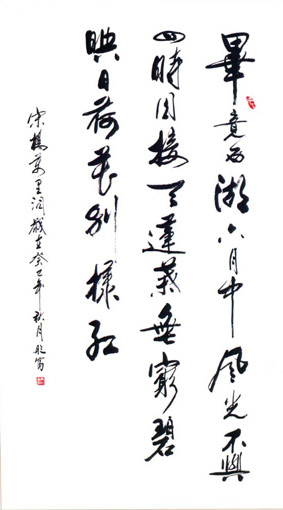 畢竟西湖六月中風光不與
四時同接天蓮葉無窮碧
映日荷花別樣紅
宋楊萬里詞歲在癸巳年秋月